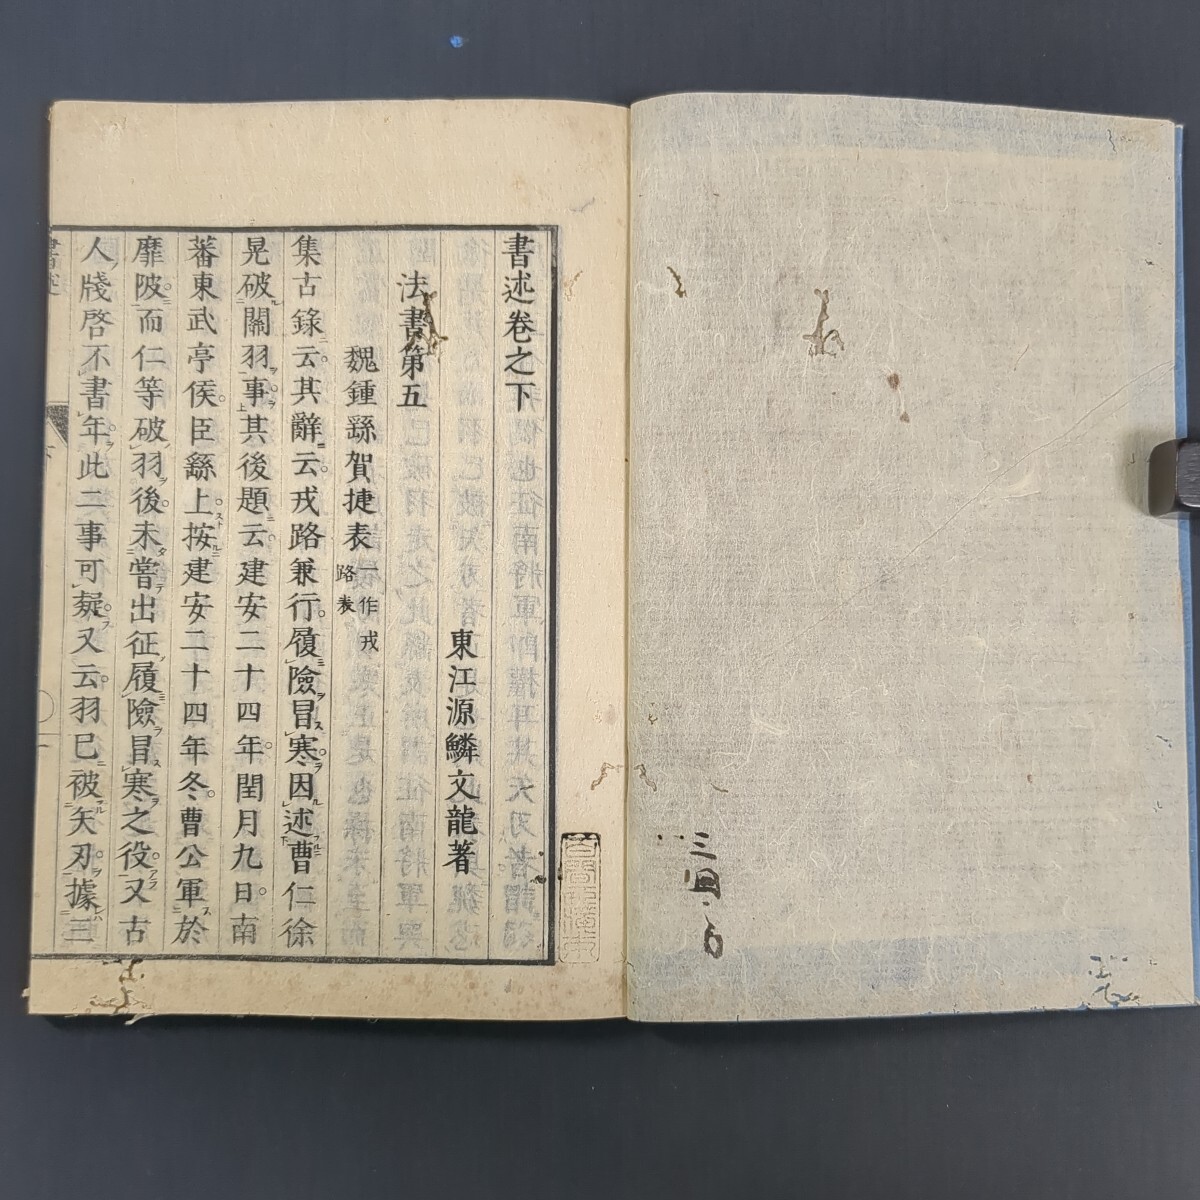 書述卷之下
東江源鱗文龍著
法書第五
魏鍾繇賀捷表一作戎路表
集古錄云其辭云戎路兼行履險冒寒因述曹仁徐
晃破關羽事其後題云建安二十四年閏月九日南
蕃東武亭侯臣繇上按建安二十四年冬曹公軍於
靡陂而仁等破羽後未嘗出征履險冒寒之役又古
人牋啓不書年此二事可疑又云羽已被矢刃據三
書述